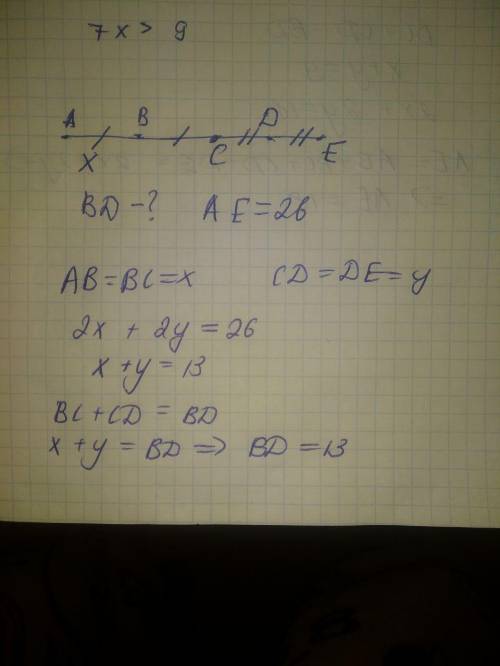 7x > 9
A B D
X C E
BD - ? AE = 26
AB = BC = x CD = DE = y
2x + 2y = 26
x + y = 13
BC + CD = BD
x + y = BD ⇒ BD = 13